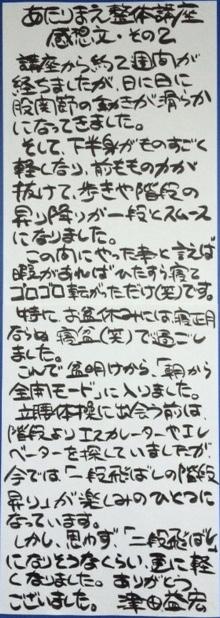 あたりまえ整体講座
感想文・その2
講座から約2週間が
経ちましたが、日に日に
股関節の動きが滑らか
になってきました。
そして、下半身がものすごく
軽くなり、前ももの力が
抜けて、歩きや階段の
昇り降りが一段とスムース
になりました。
この間にやった事と言えば
暇があればひたすら寝て
ゴロゴロ転がっただけ(笑)です。
特に、お盆休みには、寝正月
ならぬ寝盆(笑)で過ごし
ました。
これで盆明けから、「朝から
全開モード」に入りました。
立腰体操に出会う前は、
階段よりエスカレーターやエレ
ベーターを探していましたが
今では「一段飛ばしの階段
昇り」が楽しみのひとつに
なっています。
しかし、思わず「二段飛ばし」
になりそうなくらい、更に軽
くなりました。ありがとう
ございました。 津田益宏